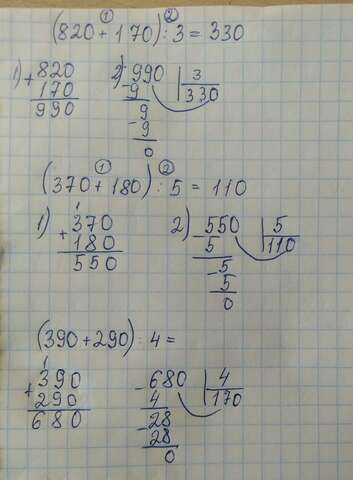 ① ②
(820 + 170) : 3 = 330
1) + 820
170
990
2) - 990 | 3
9 330
9
- 9
0
① ②
(370 + 180) : 5 = 110
1) 1
+ 370
180
550
2) - 550 | 5
5 110
- 5
5
0
(390 + 290) : 4 =
1
+ 390
290
680
- 680 | 4
4 170
- 28
28
0